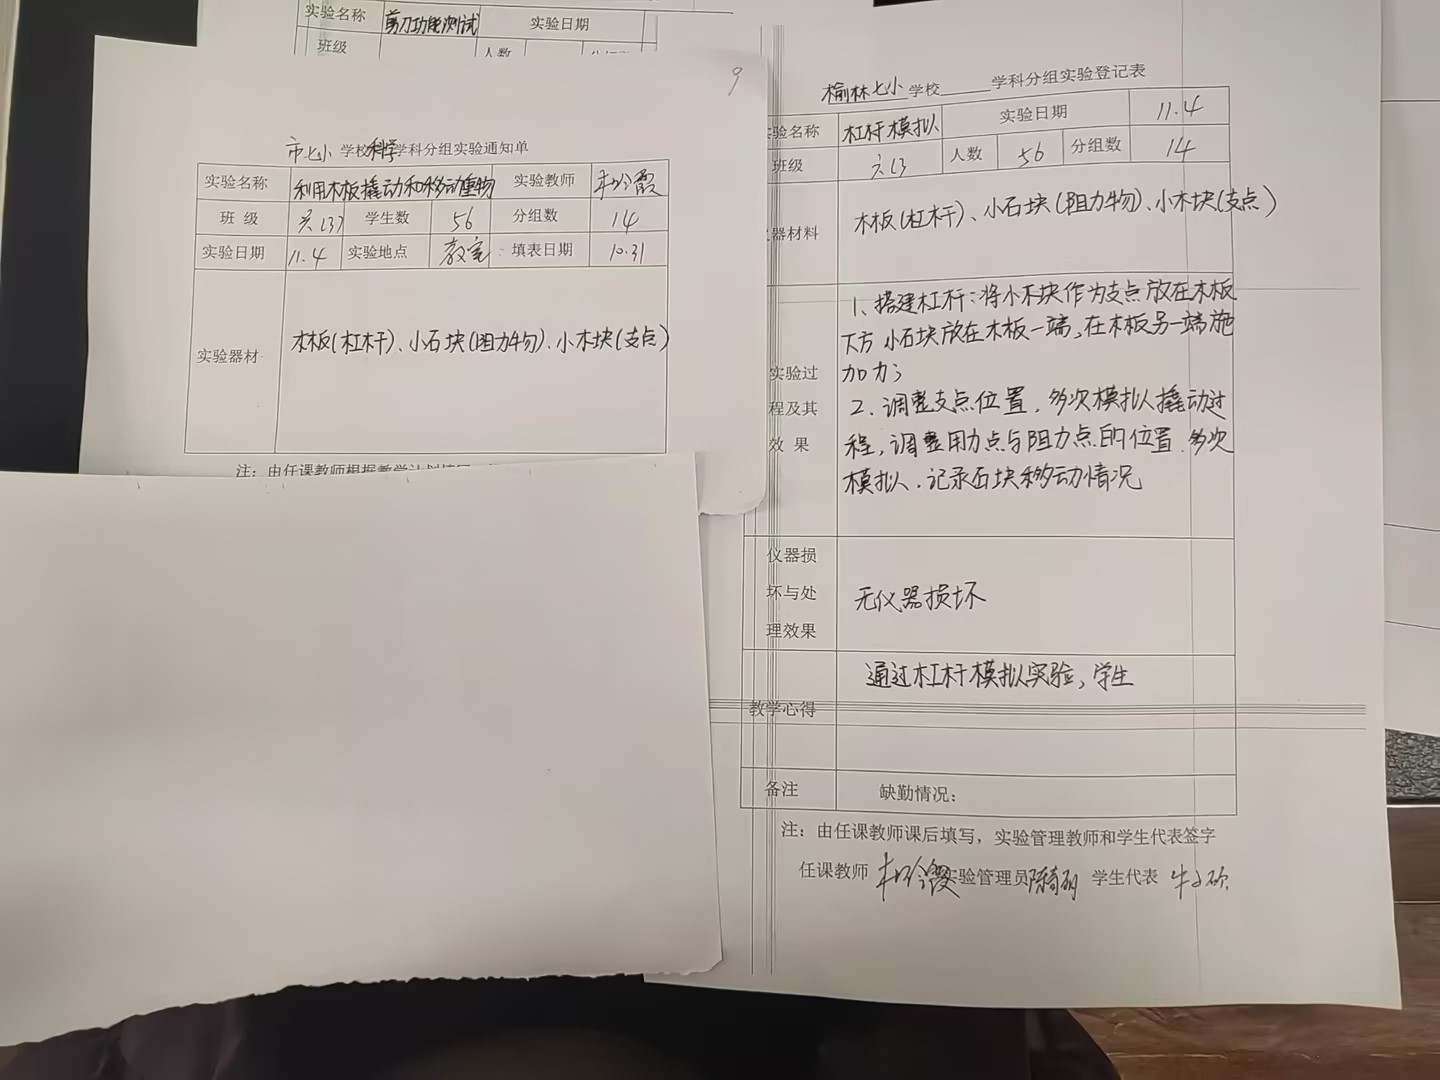 实验名称 剪刀功能测试 实验日期
班级 人数
9
市七小 学校科学学科分组实验通知单
实验名称 利用木板撬动和移动重物 实验教师
班 级 六(3) 学生数 56 分组数 14
实验日期 11.4 实验地点 教室 填表日期 10.31
实验器材 木板(杠杆)、小石块(阻力物)、小木块(支点)
注：由任课教师根据教学计划填写
榆林七小 学校 学科分组实验登记表
实验名称 杠杆模拟 实验日期 11.4
班级 六(3 人数 56 分组数 14
器材料 木板(杠杆)、小石块(阻力物)、小木块(支点)
1、搭建杠杆：将小木块作为支点放在木板
下方 小石块放在木板一端，在木板另一端施
实验过 加力；
程及其 2、调整支点位置，多次模拟撬动过
效 果 程，调整用力点与阻力点的位置，多次
模拟，记录石块移动情况
仪器损
坏与处 无仪器损坏
理效果
通过杠杆模拟实验，学生
教学心得
备注 缺勤情况：
注：由任课教师课后填写，实验管理教师和学生代表签字
任课教师 实验管理员 学生代表